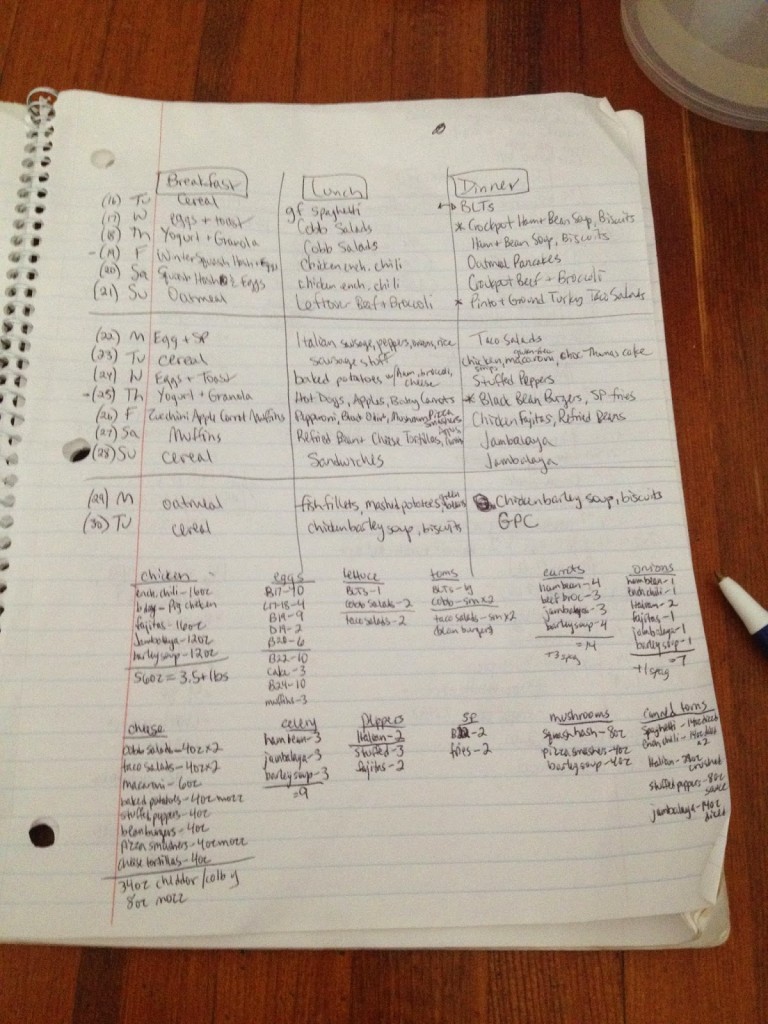 Breakfast Lunch Dinner
(16) Tu Cereal gf spaghetti BLTs
(17) W eggs + toast Cobb Salads * Crockpot Ham + Bean Soup, Biscuits
(18) Th Yogurt + Granola Cobb Salads Ham + Bean Soup, Biscuits
-(19) F Winter Squash Hash + Eggs Chicken ench. chili Oatmeal Pancakes
(20) Sa Squash Hash Eggs chicken ench. chili Crockpot Beef + Broccoli
(21) Su Oatmeal Leftover Beef + Broccoli * Pinto + Ground Turkey Taco Salads
(22) M Egg + SP Italian sausage, peppers, onions, rice Taco Salads
(23) Tu cereal sausage stuff chicken, macaroni, choc Thomas cake
(24) W Eggs + Toast baked potatoes w/ ham, broccoli, cheese Stuffed Peppers
-(25) Th Yogurt + Granola Hot Dogs, Apples, Baby Carrots * Black Bean Burgers, SP fries
(26) F Zucchini Apple Carrot Muffins Pepperoni, Black Olive, Mushroom Pizza smashers Chicken Fajitas, Refried Beans
(27) Sa Muffins Refried Bean + Cheese Tortillas, Jambalaya
(28) Su cereal Sandwiches Jambalaya
(29) M oatmeal fish fillets, mashed potatoes, green beans Chicken barley soup, biscuits
(30) Tu cereal chicken barley soup, biscuits GPC
chicken
ench. chili - 16oz
fajitas - 16oz
Jambalaya - 12oz
barley soup - 12oz
56oz = 3.5+ lbs
eggs
B17-10
B19-9
D19-2
B20-6
B22-10
cake-3
B24-10
muffins-3
lettuce
BLTs-1
cobb salads-2
taco salads-2
toms
BLTs-
cobb - sm x2
taco salads - sm x2
(bean burgers)
carrots
ham bean-4
beef broc-3
jambalaya-3
barley soup-4
=14
+3 spag
onions
ham bean-1
ench chili-1
Italian-2
fajitas-1
jambalaya-1
barley soup-1
=7
+1 spag
cheese
cobb salads-4oz x2
taco salads-4oz x2
macaroni-6oz
baked potatoes-4oz mozz
stuffed peppers-4oz
bean burgers-4oz
pizza smashers-4oz mozz
cheese tortillas-4oz
34oz cheddar/colby
8oz mozz
celery
ham bean-3
jambalaya-3
barley soup-3
=9
peppers
Italian-2
stuffed-3
fajitas-2
SP
B22-2
fries-2
mushrooms
squash hash-8oz
pizza smashers-4oz
barley soup-4oz
canned toms
spaghetti-14oz diced
ench chili-14oz diced x2
Italian-28oz crushed
stuffed peppers-8oz sauce
jambalaya-14oz diced